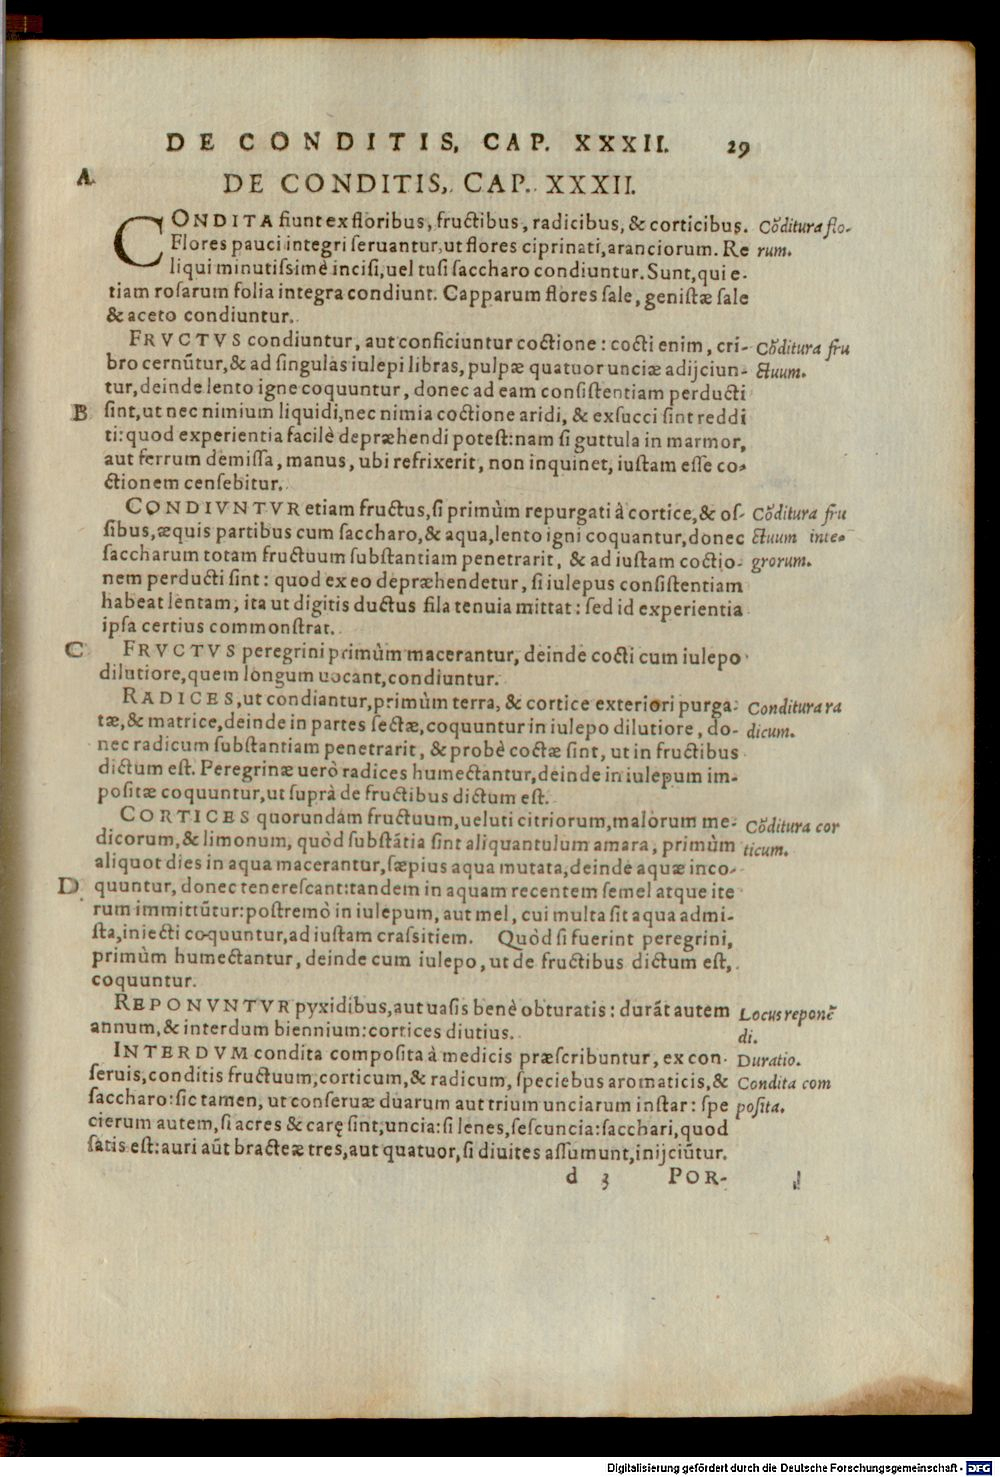 DE CONDITIS, CAP. XXXII. 29
A.
DE CONDITIS, CAP. XXXII.
CONDITA fiunt ex floribus, fructibus, radicibus, & corticibus. Cõditura flo-
Flores pauci integri seruantur, ut flores ciprinati, aranciorum. Re rum.
liqui minutissimè incisi, uel tusi saccharo condiuntur. Sunt, qui e-
tiam rosarum folia integra condiunt. Capparum flores sale, genistæ sale
& aceto condiuntur.
FRVCTVS condiuntur, aut conficiuntur coctione: cocti enim, cri- Cõditura fru
bro cernũtur, & ad singulas iulepi libras, pulpæ quatuor unciæ adijciun- ctuum.
tur, deinde lento igne coquuntur, donec ad eam consistentiam perducti
B sint, ut nec nimium liquidi, nec nimia coctione aridi, & exsucci sint reddi
ti: quod experientia facilè depræhendi potest: nam si guttula in marmor,
aut ferrum demissa, manus, ubi refrixerit, non inquinet, iustam esse co-
ctionem censebitur.
CONDIVNTVR etiam fructus, si primùm repurgati à cortice, & os- Cõditura fru
sibus, æquis partibus cum saccharo, & aqua, lento igni coquantur, donec ctuum inte-
saccharum totam fructuum substantiam penetrarit, & ad iustam coctio- grorum.
nem perducti sint: quod ex eo depræhendetur, si iulepus consistentiam
habeat lentam, ita ut digitis ductus fila tenuia mittat: sed id experientia
ipsa certius commonstrat.
C FRVCTVS peregrini primùm macerantur, deinde cocti cum iulepo
dilutiore, quem longum uocant, condiuntur.
RADICES, ut condiantur, primùm terra, & cortice exteriori purga- Conditura ra
tæ, & matrice, deinde in partes sectæ, coquuntur in iulepo dilutiore, do- dicum.
nec radicum substantiam penetrarit, & probè coctæ sint, ut in fructibus
dictum est. Peregrinæ uerò radices humectantur, deinde in iulepum im-
positæ coquuntur, ut suprà de fructibus dictum est.
CORTICES quorundam fructuum, ueluti citriorum, malorum me- Cõditura cor
dicorum, & limonum, quòd substãtia sint aliquantulum amara, primùm ticum.
aliquot dies in aqua macerantur, sæpius aqua mutata, deinde aquæ inco-
D. quuntur, donec tenerescant: tandem in aquam recentem semel atque ite
rum immittũtur: postremò in iulepum, aut mel, cui multa sit aqua admi-
sta, iniecti coquuntur, ad iustam crassitiem. Quòd si fuerint peregrini,
primùm humectantur, deinde cum iulepo, ut de fructibus dictum est,
coquuntur.
REPONVNTVR pyxidibus, aut uasis benè obturatis: durãt autem Locus reponẽ
annum, & interdum biennium: cortices diutius. di.
INTERDVM condita composita à medicis præscribuntur, ex con- Duratio.
seruis, conditis fructuum, corticum, & radicum, speciebus aromaticis, & Condita com
saccharo: sic tamen, ut conseruæ duarum aut trium unciarum instar: spe posita.
cierum autem, si acres & carę sint, uncia: si lenes, sescuncia: sacchari, quod
satis est: auri aũt bracteæ tres, aut quatuor, si diuites assumunt, inijciũtur.
d 3 POR-
Digitalisierung gefördert durch die Deutsche Forschungsgemeinschaft - DFG